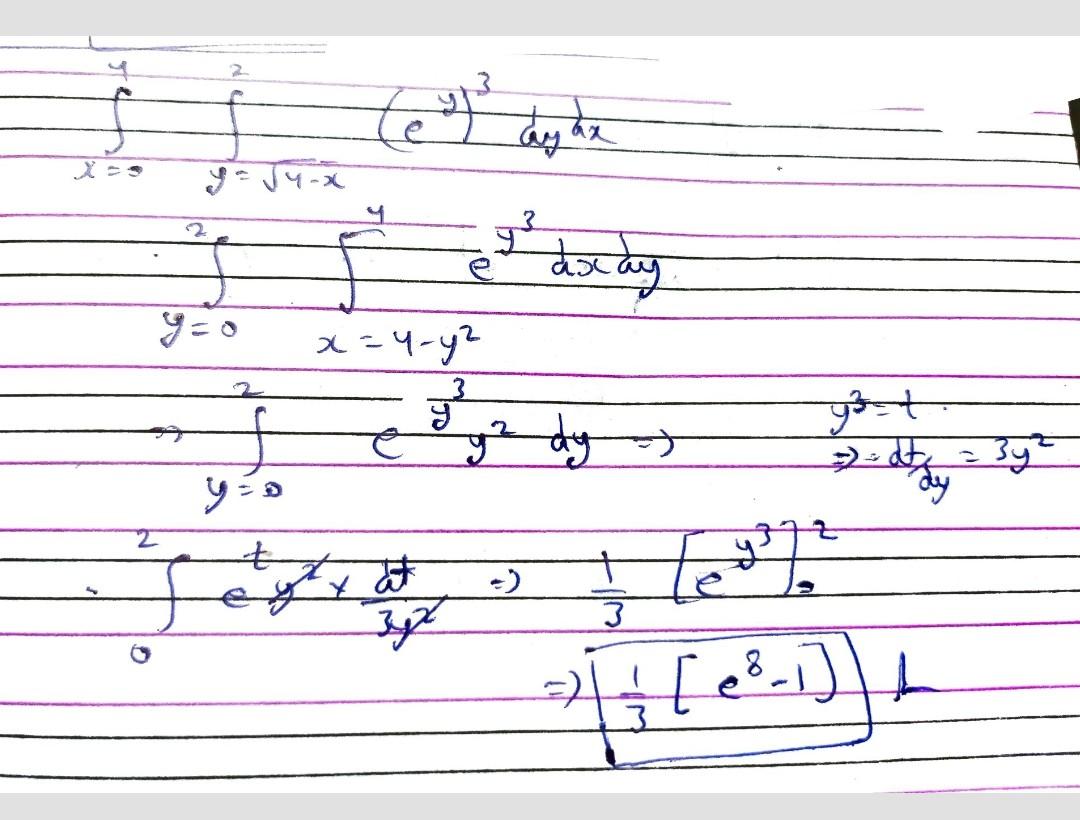 ∫_{x=0}^{4} ∫_{y=√4-x}^{2} (e^y)^3 dy dx
∫_{y=0}^{2} ∫_{x=4-y^2}^{4} e^{y^3} dx dy
⇒ ∫_{y=0}^{2} e^{y^3} y^2 dy ⇒ y^3 = t
⇒ = dt/dy = 3y^2
∫_{0}^{2} e^t y^2 × dt/3y^2 ⇒ 1/3 [e^{y^3}]_0^2
⇒ 1/3 [e^8 - 1]